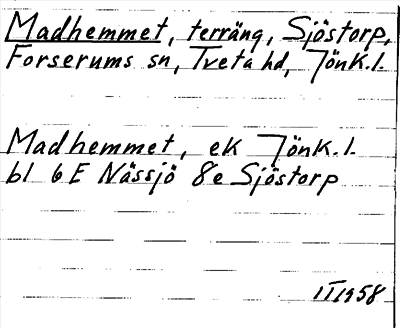 Madhemmet, terräng, Sjöstorp,
Forserums sn, Tveta hd, Jönk.l.
Madhemmet, ek Jönk.l.
bl 6E Nässjö 8e Sjöstorp
II 1958